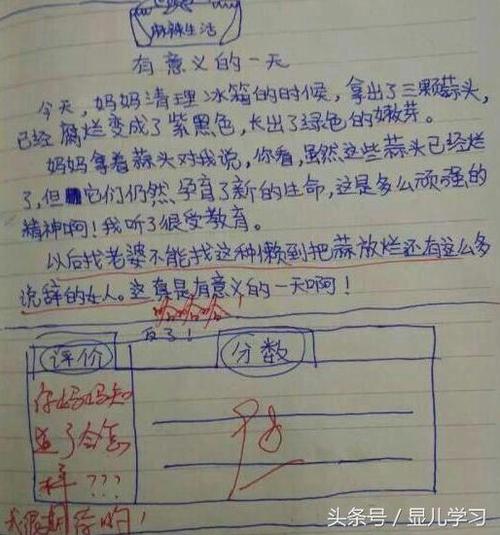 麻辣生活
有意义的一天
今天，妈妈清理冰箱的时候，拿出了三颗蒜头，
已经腐烂变成了紫黑色，长出了绿色的嫩芽。
妈妈拿着蒜头对我说，你看，虽然这些蒜头已经烂
了，但它们仍然孕育了新的生命，这是多么顽强的
精神啊！我听了很受教育。
以后找老婆不能找这种懒到把蒜放烂还有这么多
说辞的女人。这真是有意义的一天啊！
反了！
评价
分数
你妈妈知
道了会怎
样？？？
头条号／显儿学习